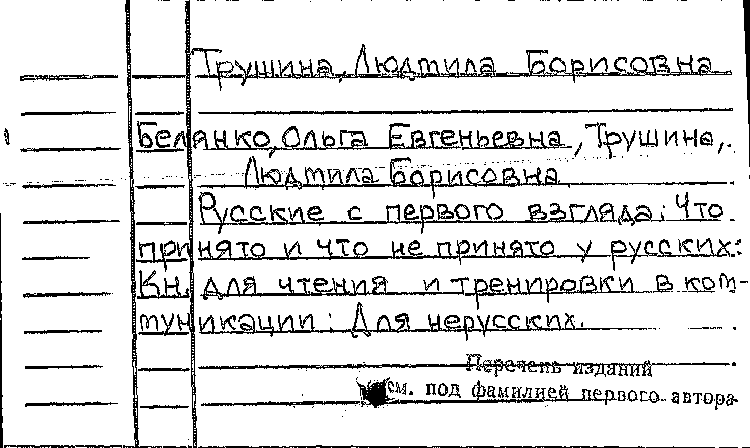 Трушина, Людмила Борисовна
Белянко, Ольга Евгеньевна, Трушина,
Людмила Борисовна
Русские с первого взгляда: Что
принято и что не принято у русских:
Кн. для чтения и тренировки в ком-
муникации: Для нерусских.
Перечень изданий
см. под фамилией первого автора